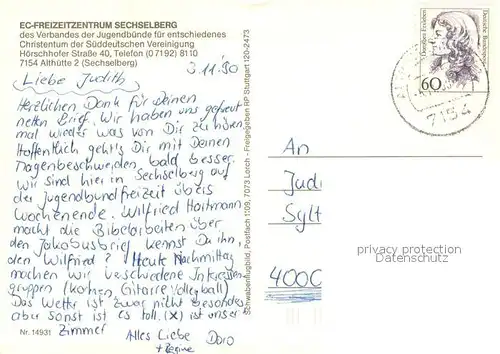 EC-FREIZEITZENTRUM SECHSELBERG
des Verbandes der Jugendbünde für entschiedenes
Christentum der Süddeutschen Vereinigung
Hörschhofer Straße 40, Telefon (07192) 8110
7154 Althütte 2 (Sechselberg)
3.11.90
Liebe Judith,
Herzlichen Dank für Deinen
netten Brief. Wir haben uns gefreut
mal wieder was von Dir zu hören
Hoffentlich geht's Dir mit Deinen
Magenbeschwerden bald besser.
Wir sind hier in Sechselberg auf
der Jugendbundfreizeit übers
Wochenende. Wilfried Haitmann
macht die Bibelarbeiten über
den Jakobusbrief. kennst Du ihn,
den Wilfried? Heute Nachmittag
machen wir verschiedene Interessen
gruppen (kochen, Gitarre, Volleyball)
Das Wetter ist zwar nicht besonders
aber sonst ist es toll. (x) ist unser
Zimmer
Alles Liebe Doro
+ Regine
Nr. 14931
Schwabenflugbild, Postfach 1109, 7073 Lorch - Freigegeben RP Stuttgart 120-2473
Dorothea Erxleben
Deutsche Bundespost
60
7154
An
Judi
Sylt
4000
privacy protection
Datenschutz